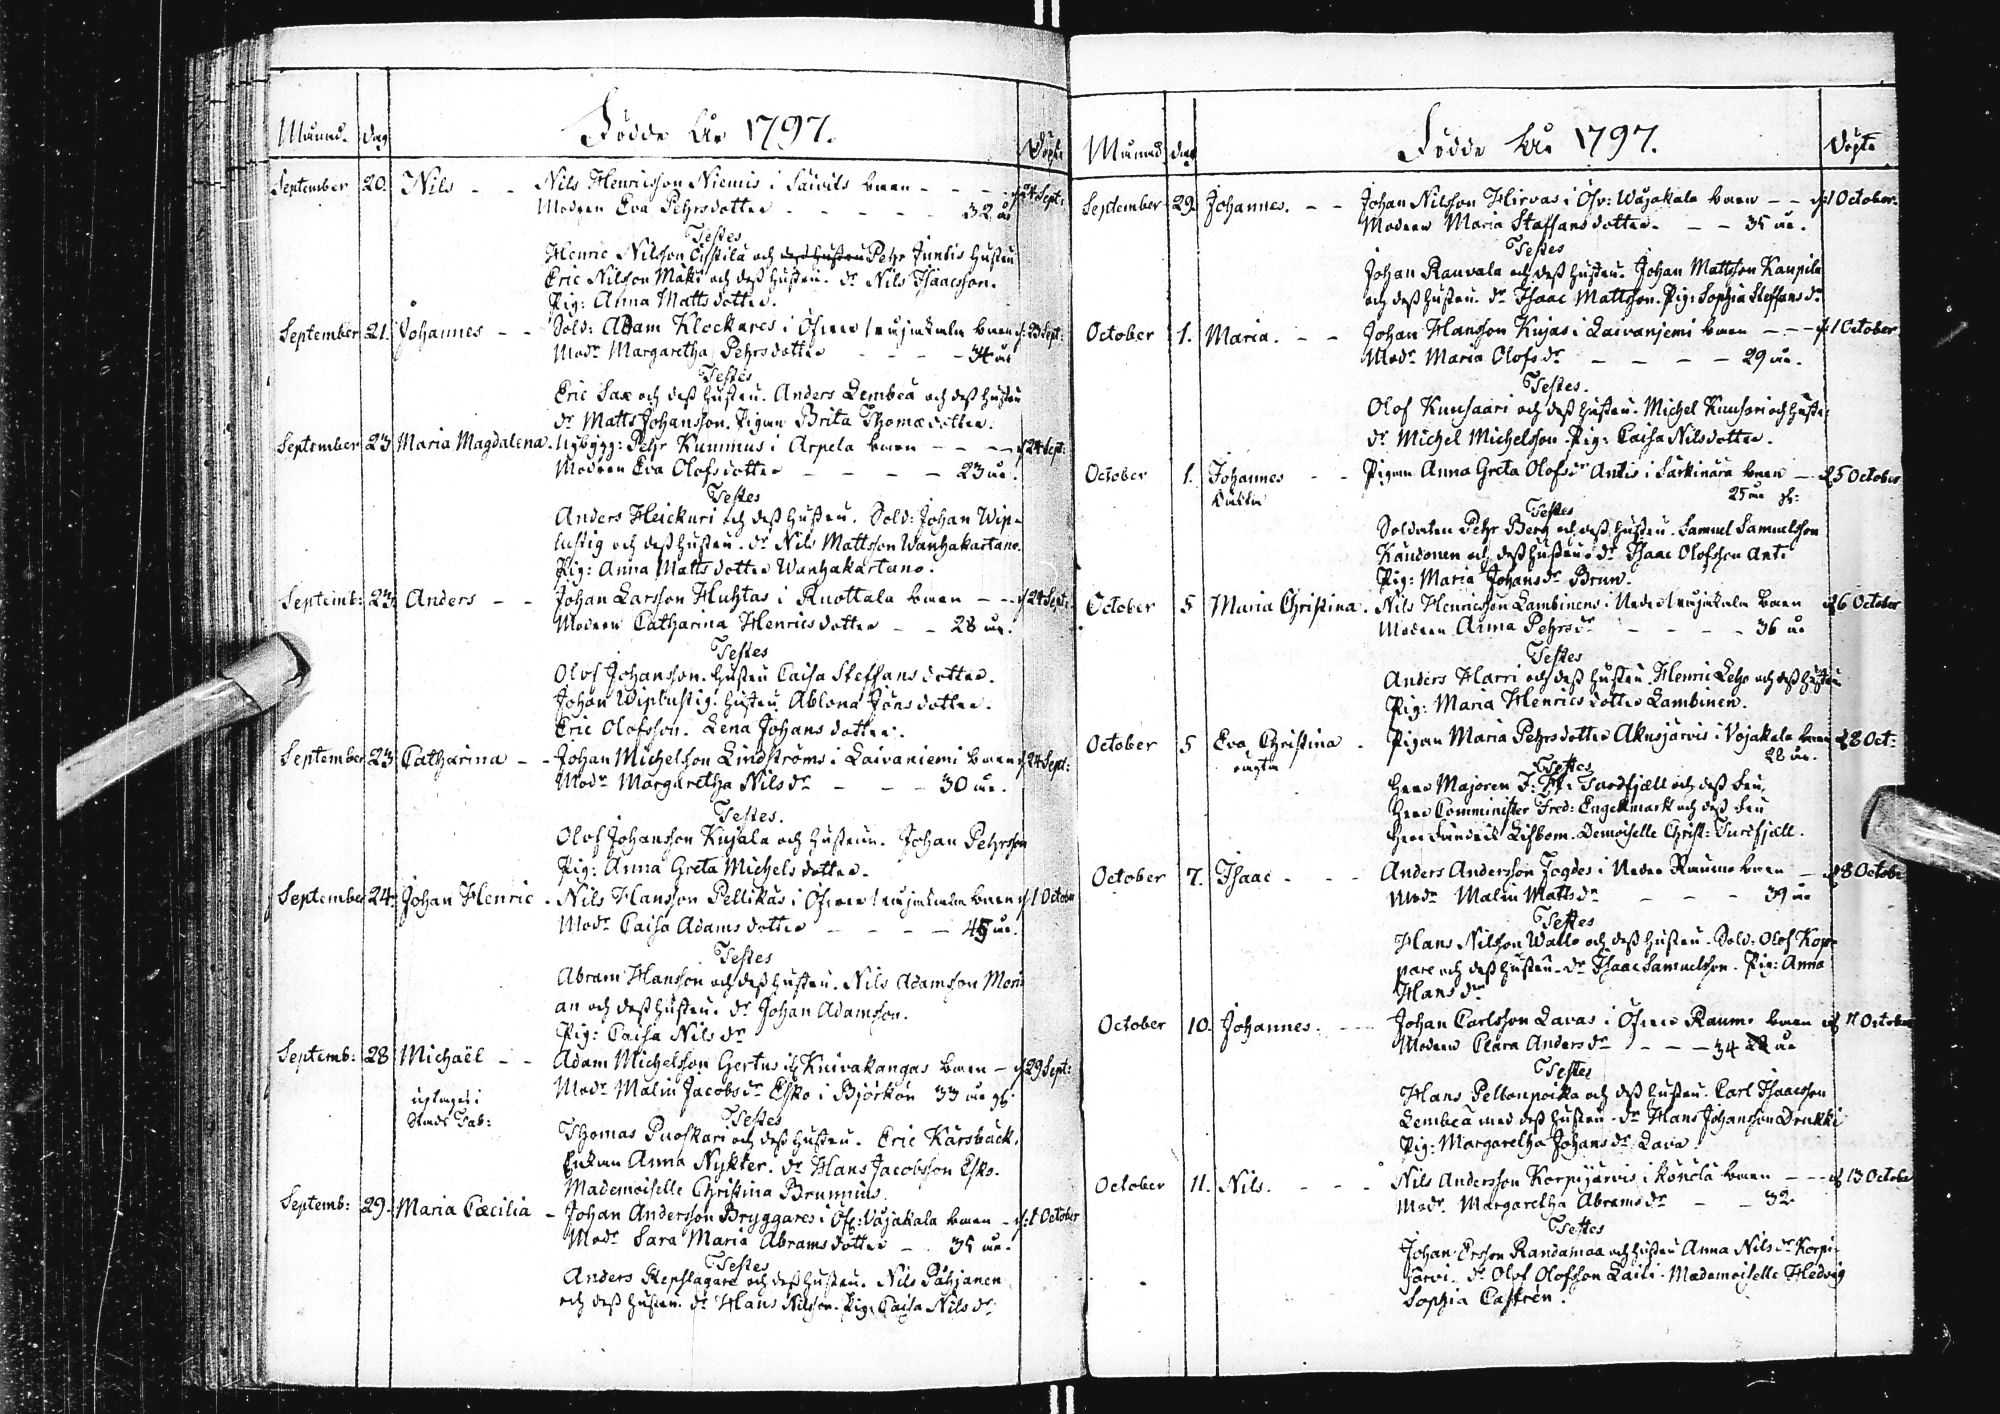 Månad. Dag Födde År 1797. Döpte
September 20. Nils - - Nils Henricsson Niemis i Säivils barn - - - d. 24 Sept:
Modren Eva Pehrsdotter - - - - - 32 år
Testes
Henric Nilsson och dess hustru Pehr Juntis hustru
Eric Nilsson Mäki och dess hustru. dr. Nils Isaacsson.
Pig: Anna Mattsdotter.
September 21. Johannes - - Sold: Adam Klockares i Öfver barn d. 23 Sept:
Modr Margaretha Pehrsdotter - - - - 34 år
Testes
Eric Sax och dess hustru. Anders Lembeä och dess hustru
dr Matts Johansson. Pigan Brita Thomædotter.
September 23 Maria Magdalena. Nybygg: Pehr Kummus i Arpela barn - - - d 24 Sept:
Modren Eva Olofsdotter - - - - - 23 år.
Testes
Anders Heickuri och dess hustru. Sold: Johan Wip-
lustig och dess hustru. dr Nils Mattsson Wanhakartano.
Pig: Anna Mattsdotter Wanhakartano.
Septemb: 23. Anders - - Johan Larsson Huhtas i Ruottala barn - - d 24 Sept:
Modren Catharina Henricsdotter - - 28 år.
Testes
Olof Johansson. hustru Caisa Steffansdotter.
Johan Wiplustig. hustru Ablona Jönsdotter.
Eric Olofsson. Lena Johansdotter.
September 23 Catharina - - Johan Michelsson Lindströms i Laivaniemi barn d 24 Sept:
Modr Margaretha Nilsdr - - - 30 år.
Testes.
Olof Johansson Kujala och hustrun. Johan Pehrsson
Pig: Anna Greta Michelsdotter.
September 24. Johan Henric - Nils Hansson Pellikas i Öfver barn d 1 October
Modr Caisa Adamsdotter - - - - 45 år.
Testes
Abram Hansson och dess hustru. Nils Adamsson Mori-
an och dess hustru. dr Johan Adamsson.
Pig: Caisa Nilsdr
Septemb: 28 Michaël - - Adam Michelsson Gertus i Knivakangas barn - d 29 Sept:
Modr Malin Jacobsdr Esko i Björkön 33 år
uptaget i
Stads Tab:
Testes
Thomas Puoskari och dess hustru. Eric Kärsbäck.
Enkan Anna Nykter. dr Hans Jacobsson Esko.
Mademoiselle Christina Brunnius.
Septemb: 29. Maria Cæcilia - Johan Andersson Bryggares i Öfr: Väjakala barn - d. 1 October
Modr Sara Maria Abramsdotter - - 35 år.
Testes
Anders Repslagare och dess hustru. Nils Pähjänen
och dess hustru. dr Hans Nilsson. Pig: Caisa Nilsdr
Månad Dag Födde År 1797. Döpte
September 29. Johannes. - - Johan Nilsson Hirvas i Öfv: Wäjakala barn - - d: 1 October.
Modren Maria Staffansdotter. - - 35 år.
Testes
Johan Rauvala och dess hustru. Johan Mattsson Kaupila
och dess hustru. dr Isaac Mattsson. Pig: Sophia Steffansdr
October 1. Maria. - - Johan Hansson Kujas i Laivaniemi barn - - - d 1 October
Modr Maria Olofsdr - - - - - 29 år.
Testes.
Olof Kuusaari och dess hustru. Michel Kuusari och hustr:
dr Michel Michelsson. Pig: Caisa Nilsdotter.
October 1. Johannes - - Pigan Anna Greta Olofsdr Antis i Särkinära barn - d 5 October
oäkta 25 år
Testes
Soldaten Pehr Berg och dess hustru. Samuel Samuelsson
Kändönen och dess hustru. dr Isaac Olofsson Anti
Pig: Maria Johansdr Brun.
October 5 Maria Christina. Nils Henricsson Lambinens i Neder barn d 6 October
Modren Anna Pehrsdr - - - - 36 år
Testes
Anders Harri och dess hustru. Henric Leho och dess hustru
Pig: Maria Henricsdotter Lambinen.
October 5 Eva Christina. Pigan Maria Pehrsdotter Akusjärvis i Vojakala barn d 8 Oct:
oägta 28 år.
Testes
Herr Majoren och dess fru.
Herr Comminister Fred: Engelmark och dess fru
Herr Lisbom. Demoiselle Christ: Turdfjæll.
October 7. Isaac - - - Anders Andersson Fogdes i Neder Raumo barn - d 8 October
Modr Malin Mattsdr - - - - 39 år
Testes
Hans Nilsson Wallo och dess hustru. Sold: Olof Kop-
pare och dess hustru. dr Isaac Samuelsson. Pig: Anna
Hansdr
October 10. Johannes. - - Johan Carlsson Lavas i Öfver Raumo barn d 11 October
Modren Clara Andersdr - - - 34 år
Testes
Hans Peltonpoika och dess hustru. Carl Isaacsson
Lembeä med dess hustru. dr Hans Johansson Drukki
Pig: Margaretha Johansdr Lava
October 11. Nils. - - - Nils Andersson Korpijärvis i Könölä barn - - d 13 October
Modr. Margaretha Abramsdr - - 32
Testes
Johan Ersson Randamaa och hustru Anna Nilsdr Korpi-
järvi. dr Olof Olofsson Laiti. Mademoiselle Hedvig
Sophia Castrén.